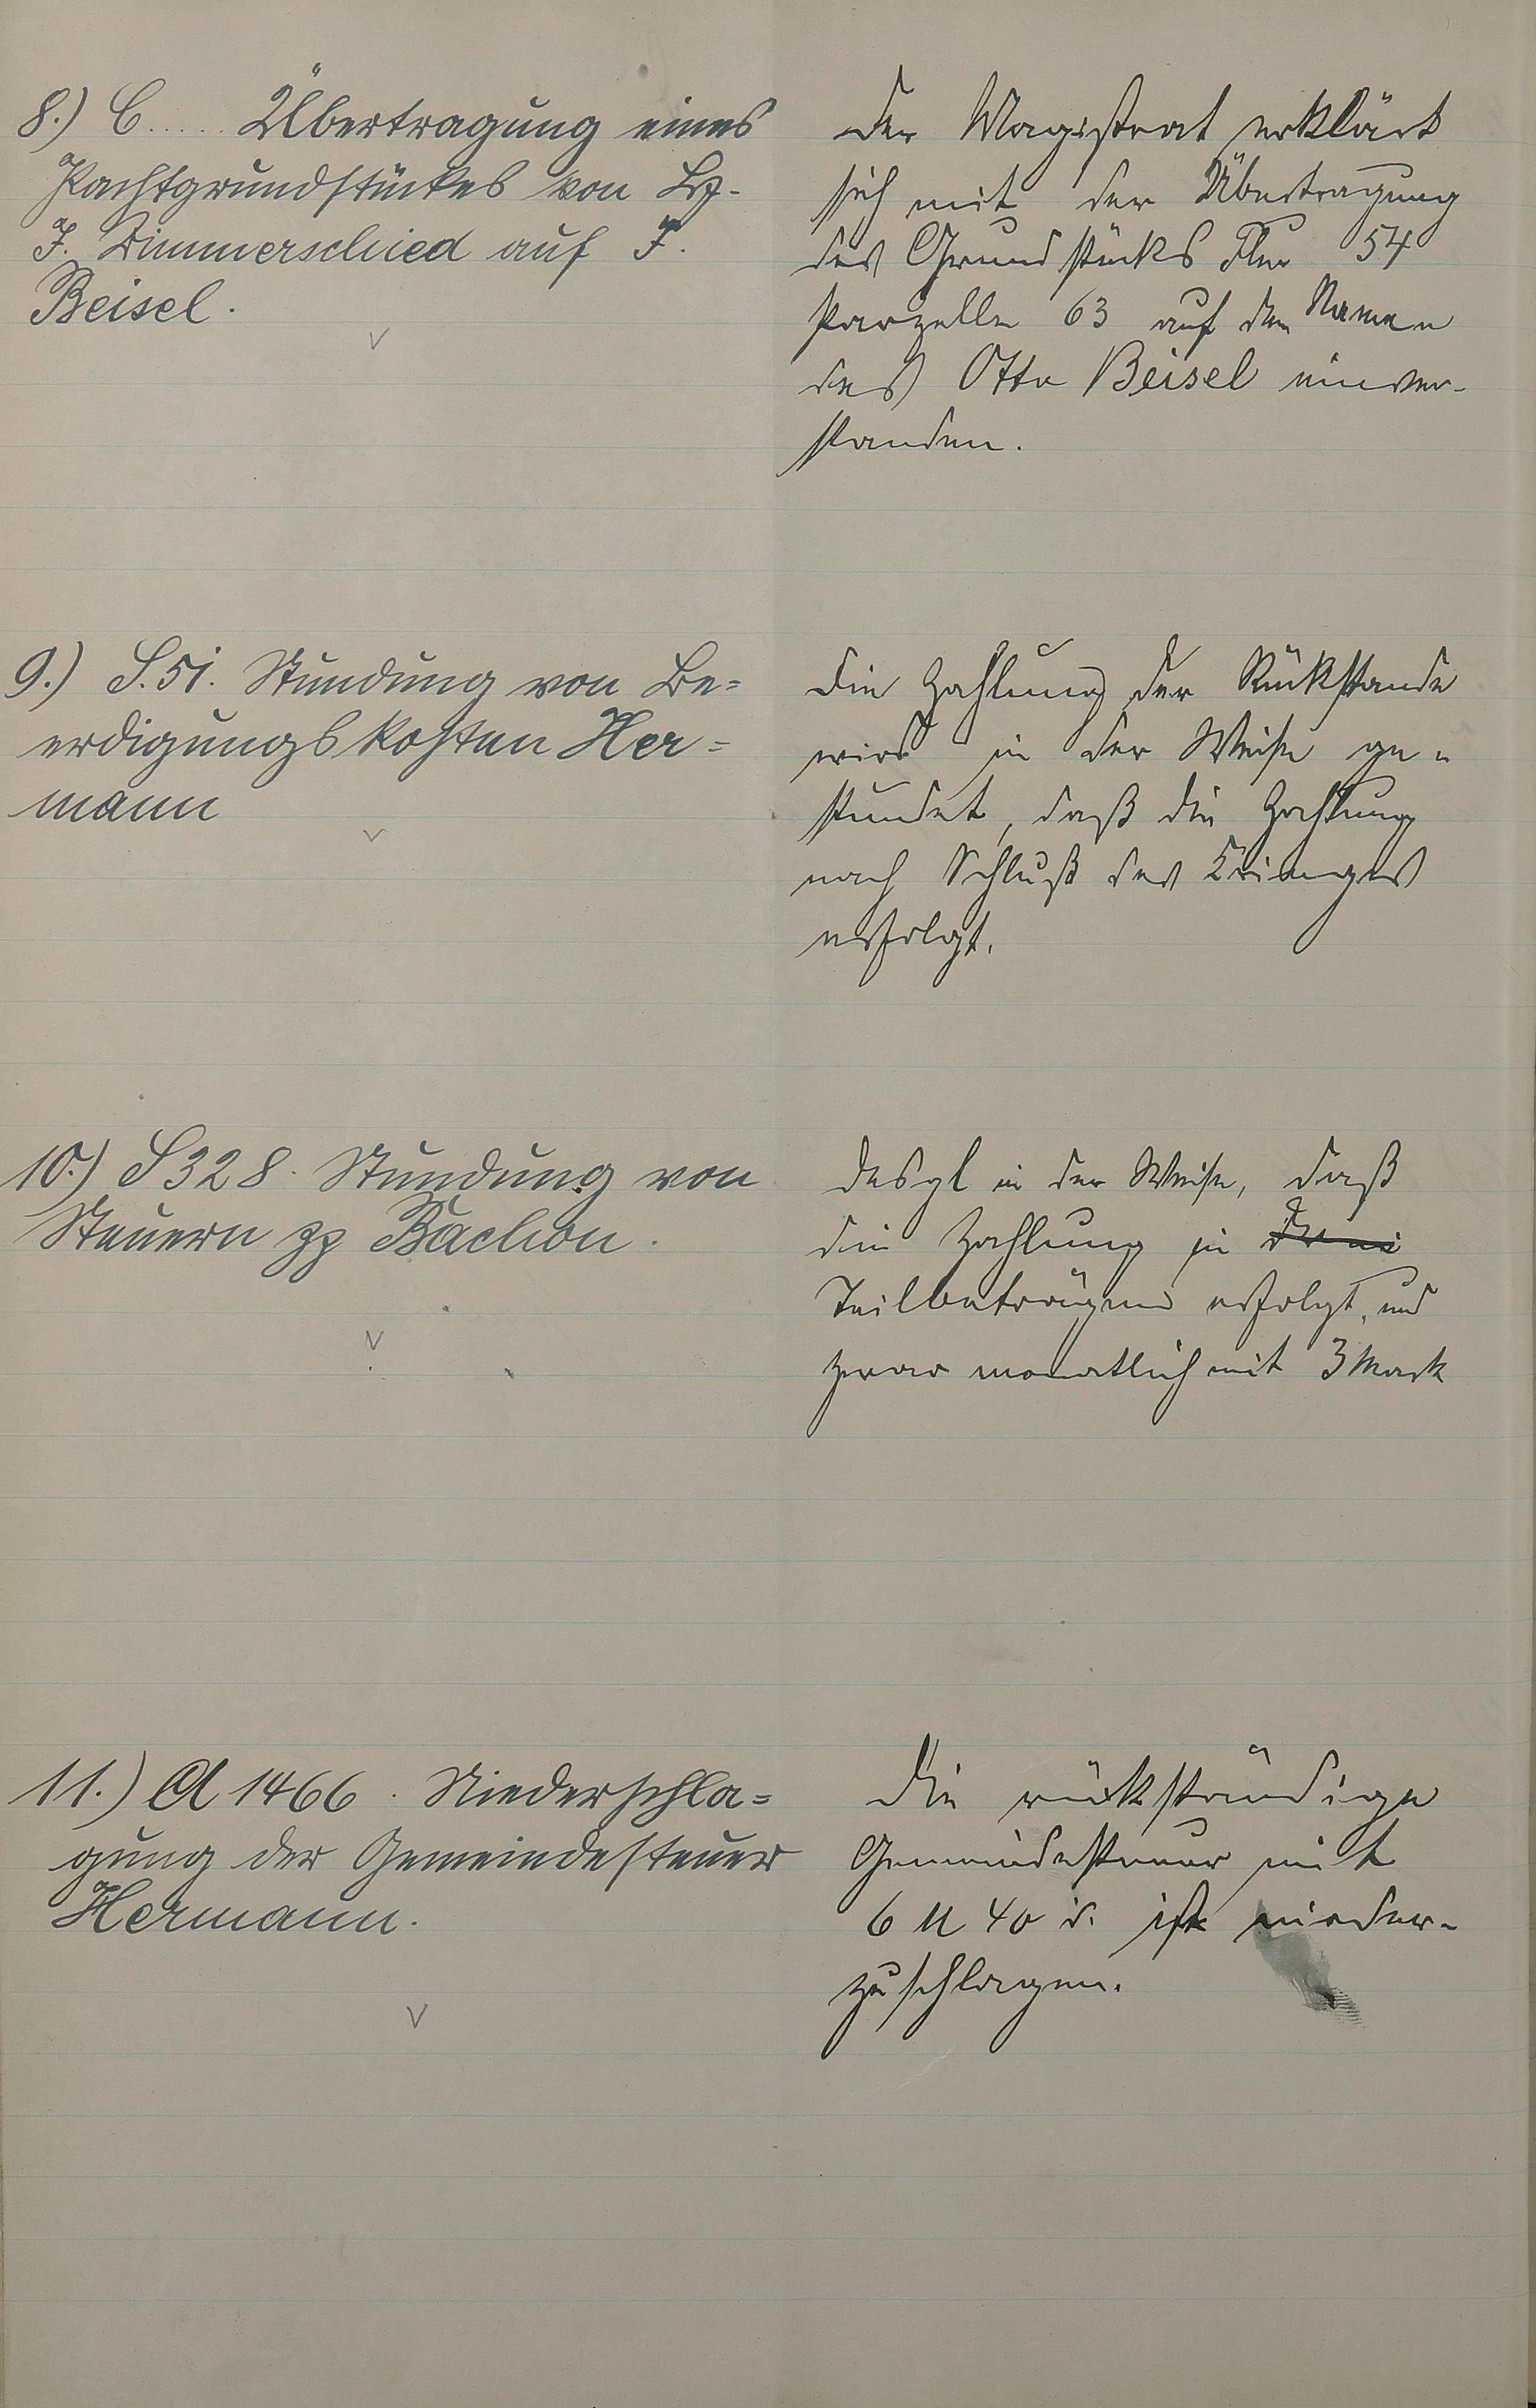 8.) C..... Übertragung eines
Pachtgrundstückes von
J. Dimmerschied auf F.
Beisel.
Der Magistrat erklärt
sich mit der Übertragung
des Grundstücks Flur 54
Parzelle 63 auf den Namen
des Otto Beisel einver-
standen.
9.) S. 51. Stundung von Be=
erdigungskosten Her=
mann
Die Zahlung der Rückstände
wird in der Weise ge=
stundet, daß die Zahlung
nach Schluß des Krieges
erfolgt.
10.) S 328. Stundung von
Steuern Bachon.
desgl in der Weise, daß
die Zahlung in Drei
Teilbeträgen erfolgt, und
zwar monatlich mit 3 Mark
11.) A 1466. Niederschla=
gung der Gemeindesteuer
Hermann.
Die rückständige
Gemeindesteuer mit
6 M 40 ist nieder-
zuschlagen.